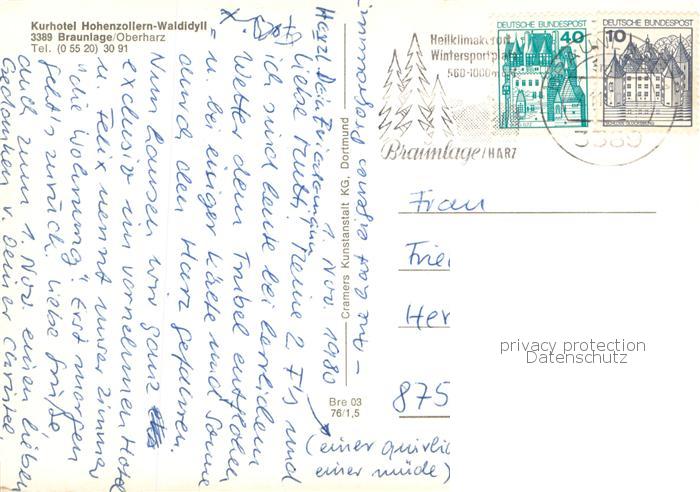 Kurhotel Hohenzollern-Waldidyll
3389 Braunlage/Oberharz
Tel. (0 55 20) 30 91
1. Nov. 1980
liebe Mutti, Meine 2 F's und
ich sind heute bei herrlichem
Wetter dem Trubel entflohen
u. bei einiger Kälte und Sonne
durch den Harz gefahren.
Nun hausen wir ganz
exclusiv im vornehmen Hotel
u. Felix nennt unser Zimmer
"die Wohnung". Erst morgen
geht's zurück. Liebe Grüße
auch zum 1. Nov. einen lieben
Gedanken v. Deiner Christel.
(einer quirlig
einer müde)
Cramers Kunstanstalt KG, Dortmund
Bre 03
76/1,5
Heilklimakurort
Wintersportplatz
560-1000 m
Braunlage/HARZ
DEUTSCHE BUNDESPOST
40
DEUTSCHE BUNDESPOST
10
3389
Frau
Frie
Her
875
privacy protection
Datenschutz